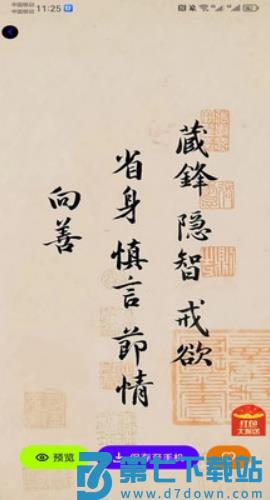 中国移动
中国移动 11:25
藏鋒 隐智 戒欲
省身 慎言 節情
向善
红包
大派送
预览
保存至手机
第七下载站
www.d7down.com